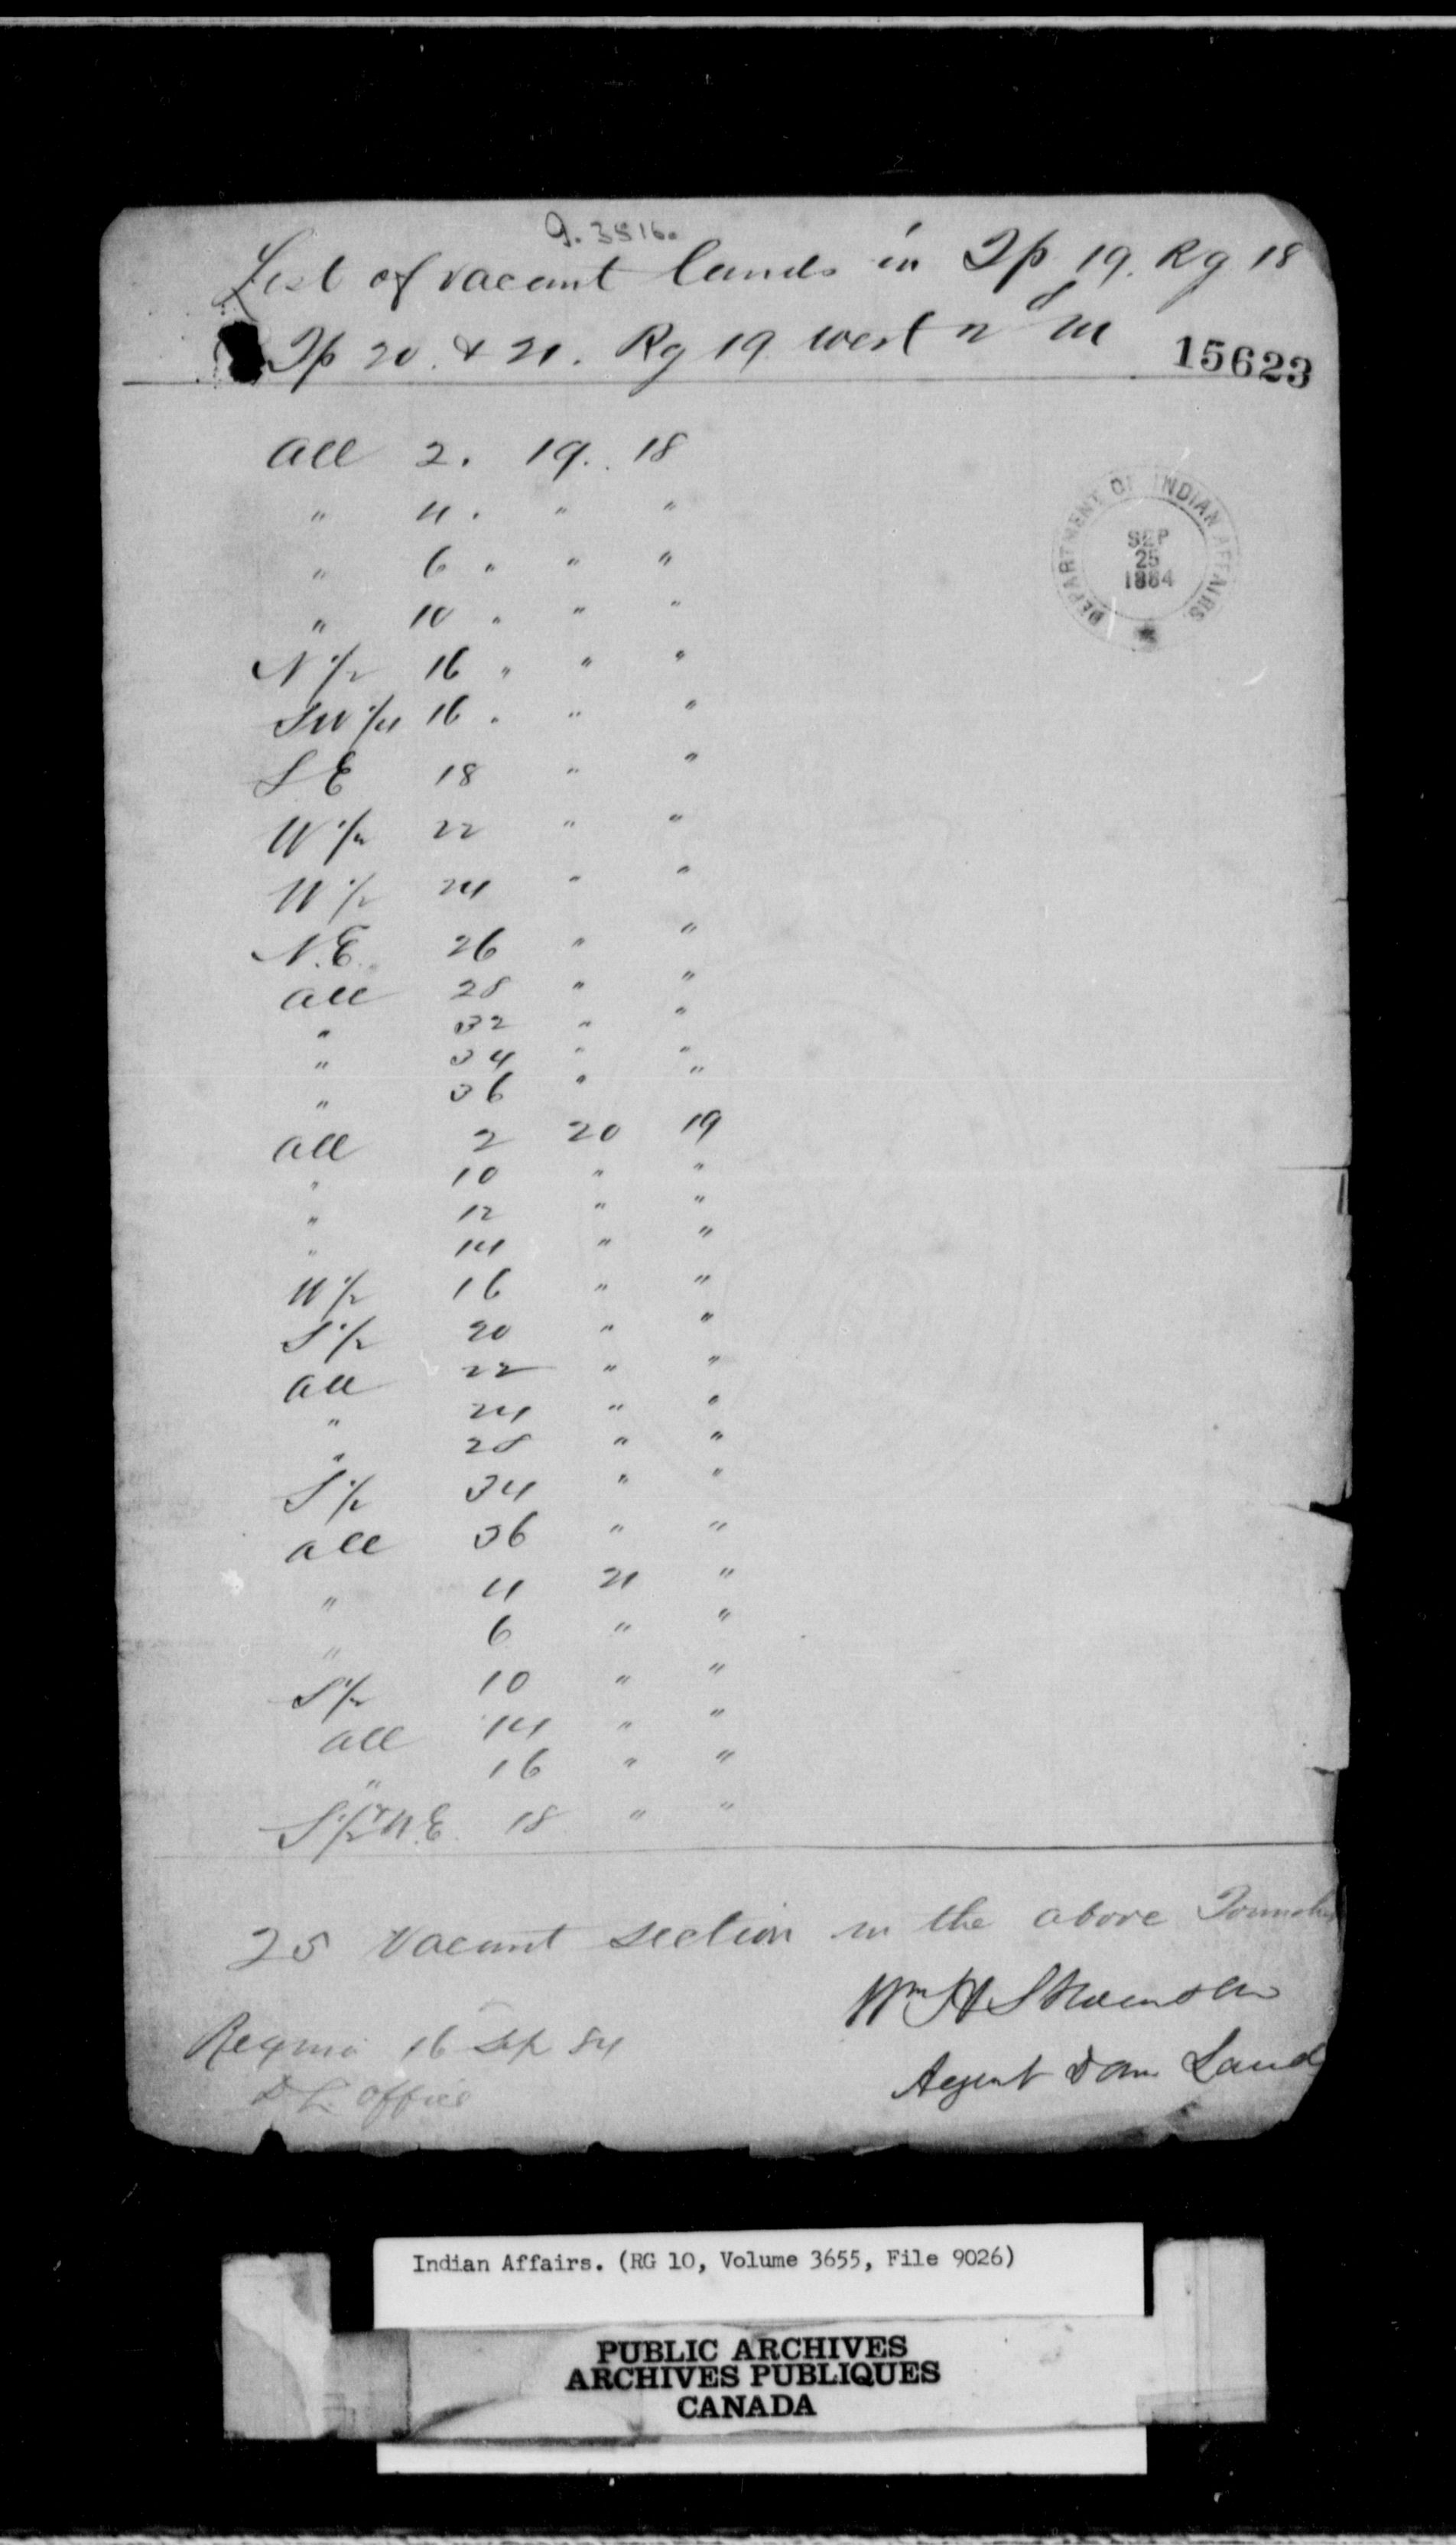 9.3816.
List of vacant lands in Tp 19. Rg 18
Tp 20. & 21. Rg 19 west 2d M
15623
DEPARTMENT OF INDIAN AFFAIRS
SEP
25
1884
All 2. 19. 18
" 4. " "
" 6 " " "
" 10 " " "
N 1/2 16 " " "
SW 1/4 16 " " "
S E 18 " "
W 1/2 22 " "
W 1/2 24 " "
N.E. 26 " "
all 28 " "
" 32 " "
" 34 " "
" 36 " "
all 2 20 19
" 10 " "
" 12 " "
" 14 " "
W 1/2 16 " "
S 1/2 20 " "
all 22 " "
" 24 " "
" 28 " "
S 1/2 34 " "
all 36 " "
" 4 21 "
" 6 " "
S 1/2 10 " "
all 14 " "
" 16 " "
S 1/2 & N.E. 18 " "
25 Vacant section in the above
Wm H
Regina 16 Sep 84
Agent Dom Land
D L office
Indian Affairs. (RG 10, Volume 3655, File 9026)
PUBLIC ARCHIVES
ARCHIVES PUBLIQUES
CANADA